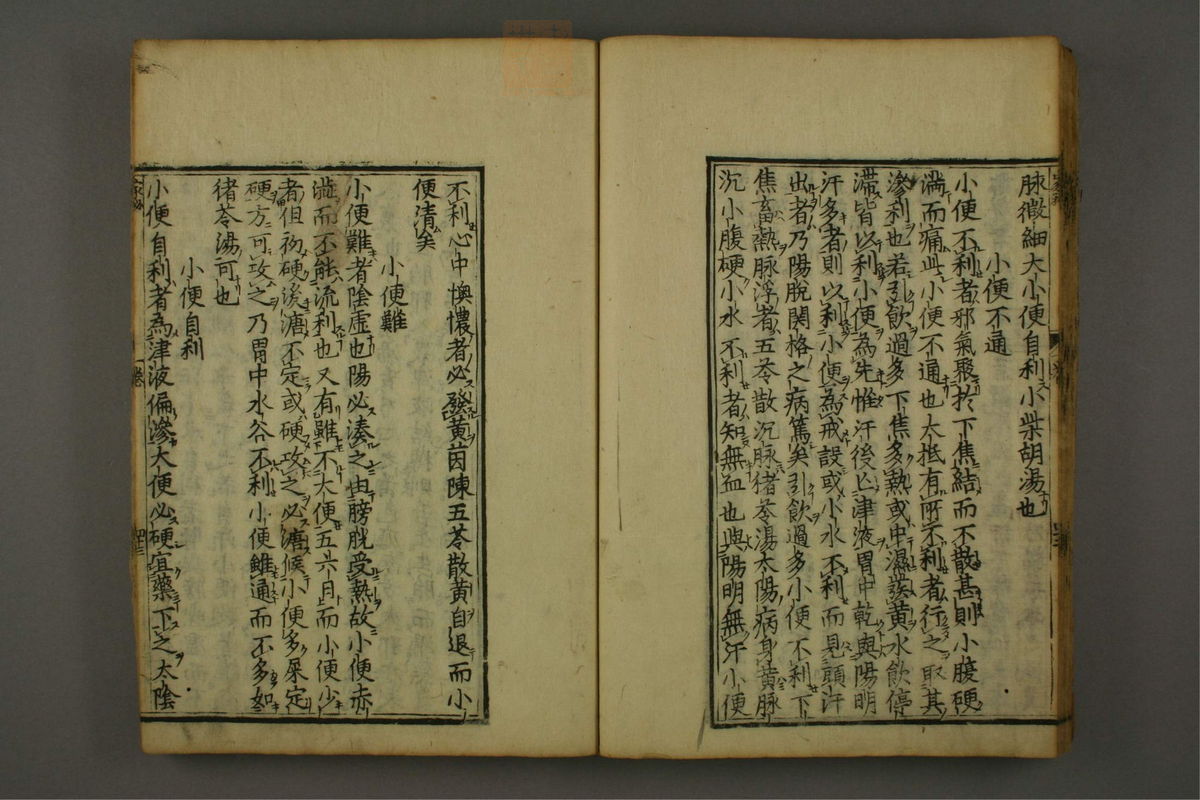 脉微細大小便自利小柴胡湯也
小便不通
小便不利者邪氣聚於下焦結而不散甚則小腹硬
滿而痛此小便不通也大抵有所不利者行之取其
滲利也若引飲過多下焦多熱或中濕發黄水飲停
滯皆以利小便為先惟汗後亡津液胃中乾與陽明
汗多者則以利小便為戒設或小水不利而見頭汗
出者乃陽脫関格之病篤矣引飲過多小便不利下
焦畜熱脉浮者五苓散沉脉猪苓湯太陽病身黄脉
沉小腹硬小水不利者知無血也與陽明無汗小便
不利心中懊憹者必發黄茵陳五苓散黄自退而小
便清矣
小便難
小便難者陰虛也陽必湊之由膀胱受熱故小便赤
澁而不能流利也又有雖不大便五六日而小便少
者但初硬後溏不定或硬攻之必溏候小便多屎定
硬方可攻之乃胃中水谷不利小便雖通而不多如
猪苓湯可也
小便自利
小便自利者為津液偏滲大便必硬宜藥下之太陰